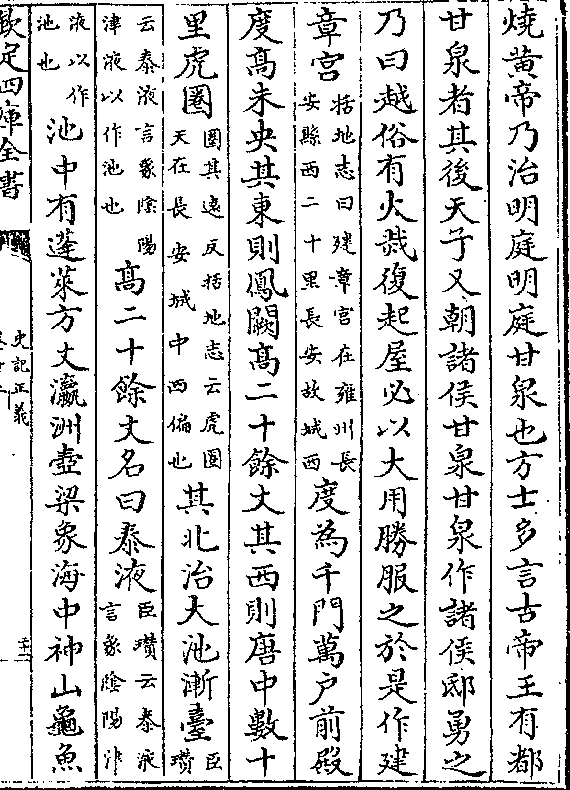 燒黄帝乃治明庭明庭甘泉也方士多言古帝王有都
甘泉者其後天子又朝諸侯甘泉甘泉作諸侯邸勇之
乃曰越俗有火烖復起屋必以大用勝服之於是作建
章宮括地志曰建章宮在雍州長安縣西二十里長安故城西度為千門萬户前殿
度髙未央其東則鳳闕髙二十餘丈其西則唐中數十
里虎圈圈其逺反括地志云虎圈天在長安城中西偏也其北治大池漸臺臣瓚
云泰液言象陰陽津液以作池也髙二十餘丈名曰泰液臣瓚云泰液言象陰陽津
液以作池也池中有蓬萊方丈瀛洲壺梁象海中神山龜魚
欽定四庫全書
史記正義